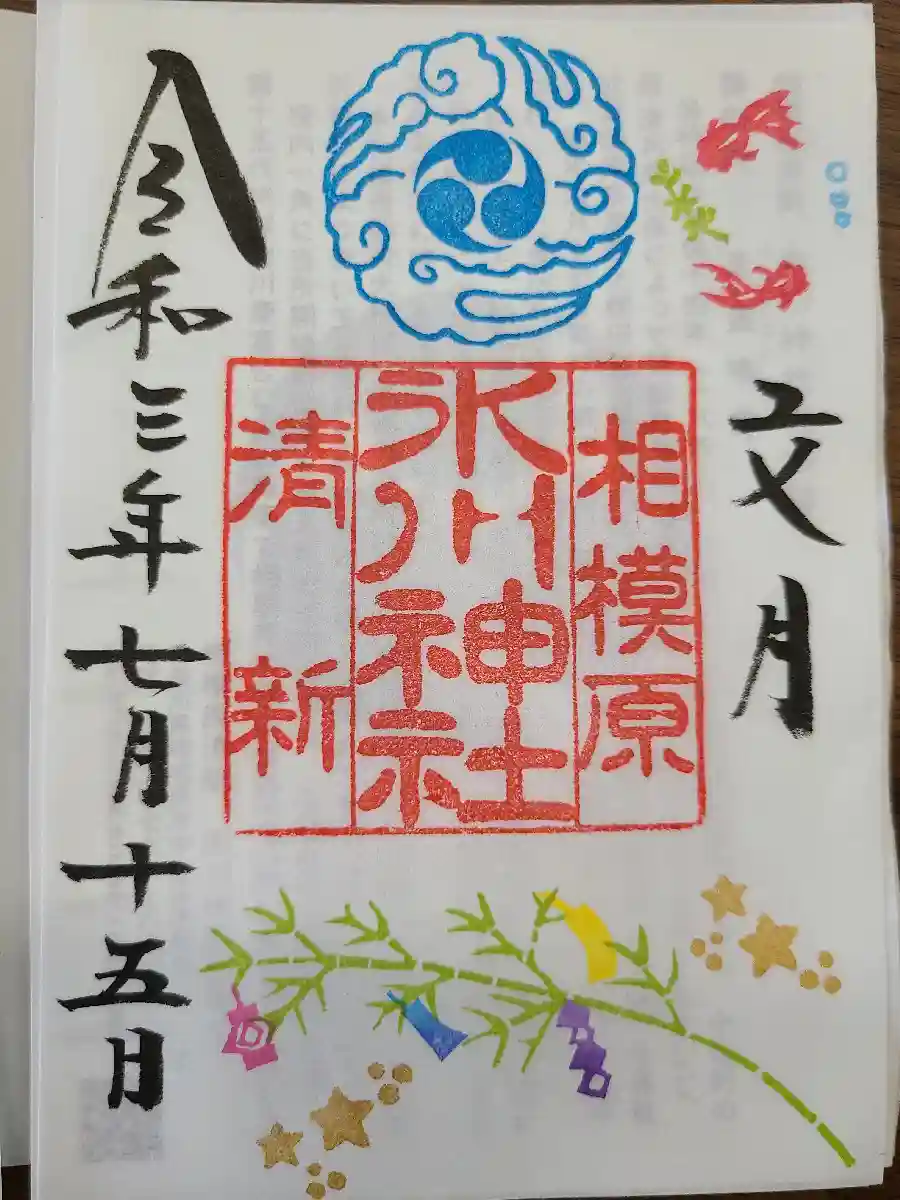 文月
相模原
氷川神社
清新
令和三年七月十五日